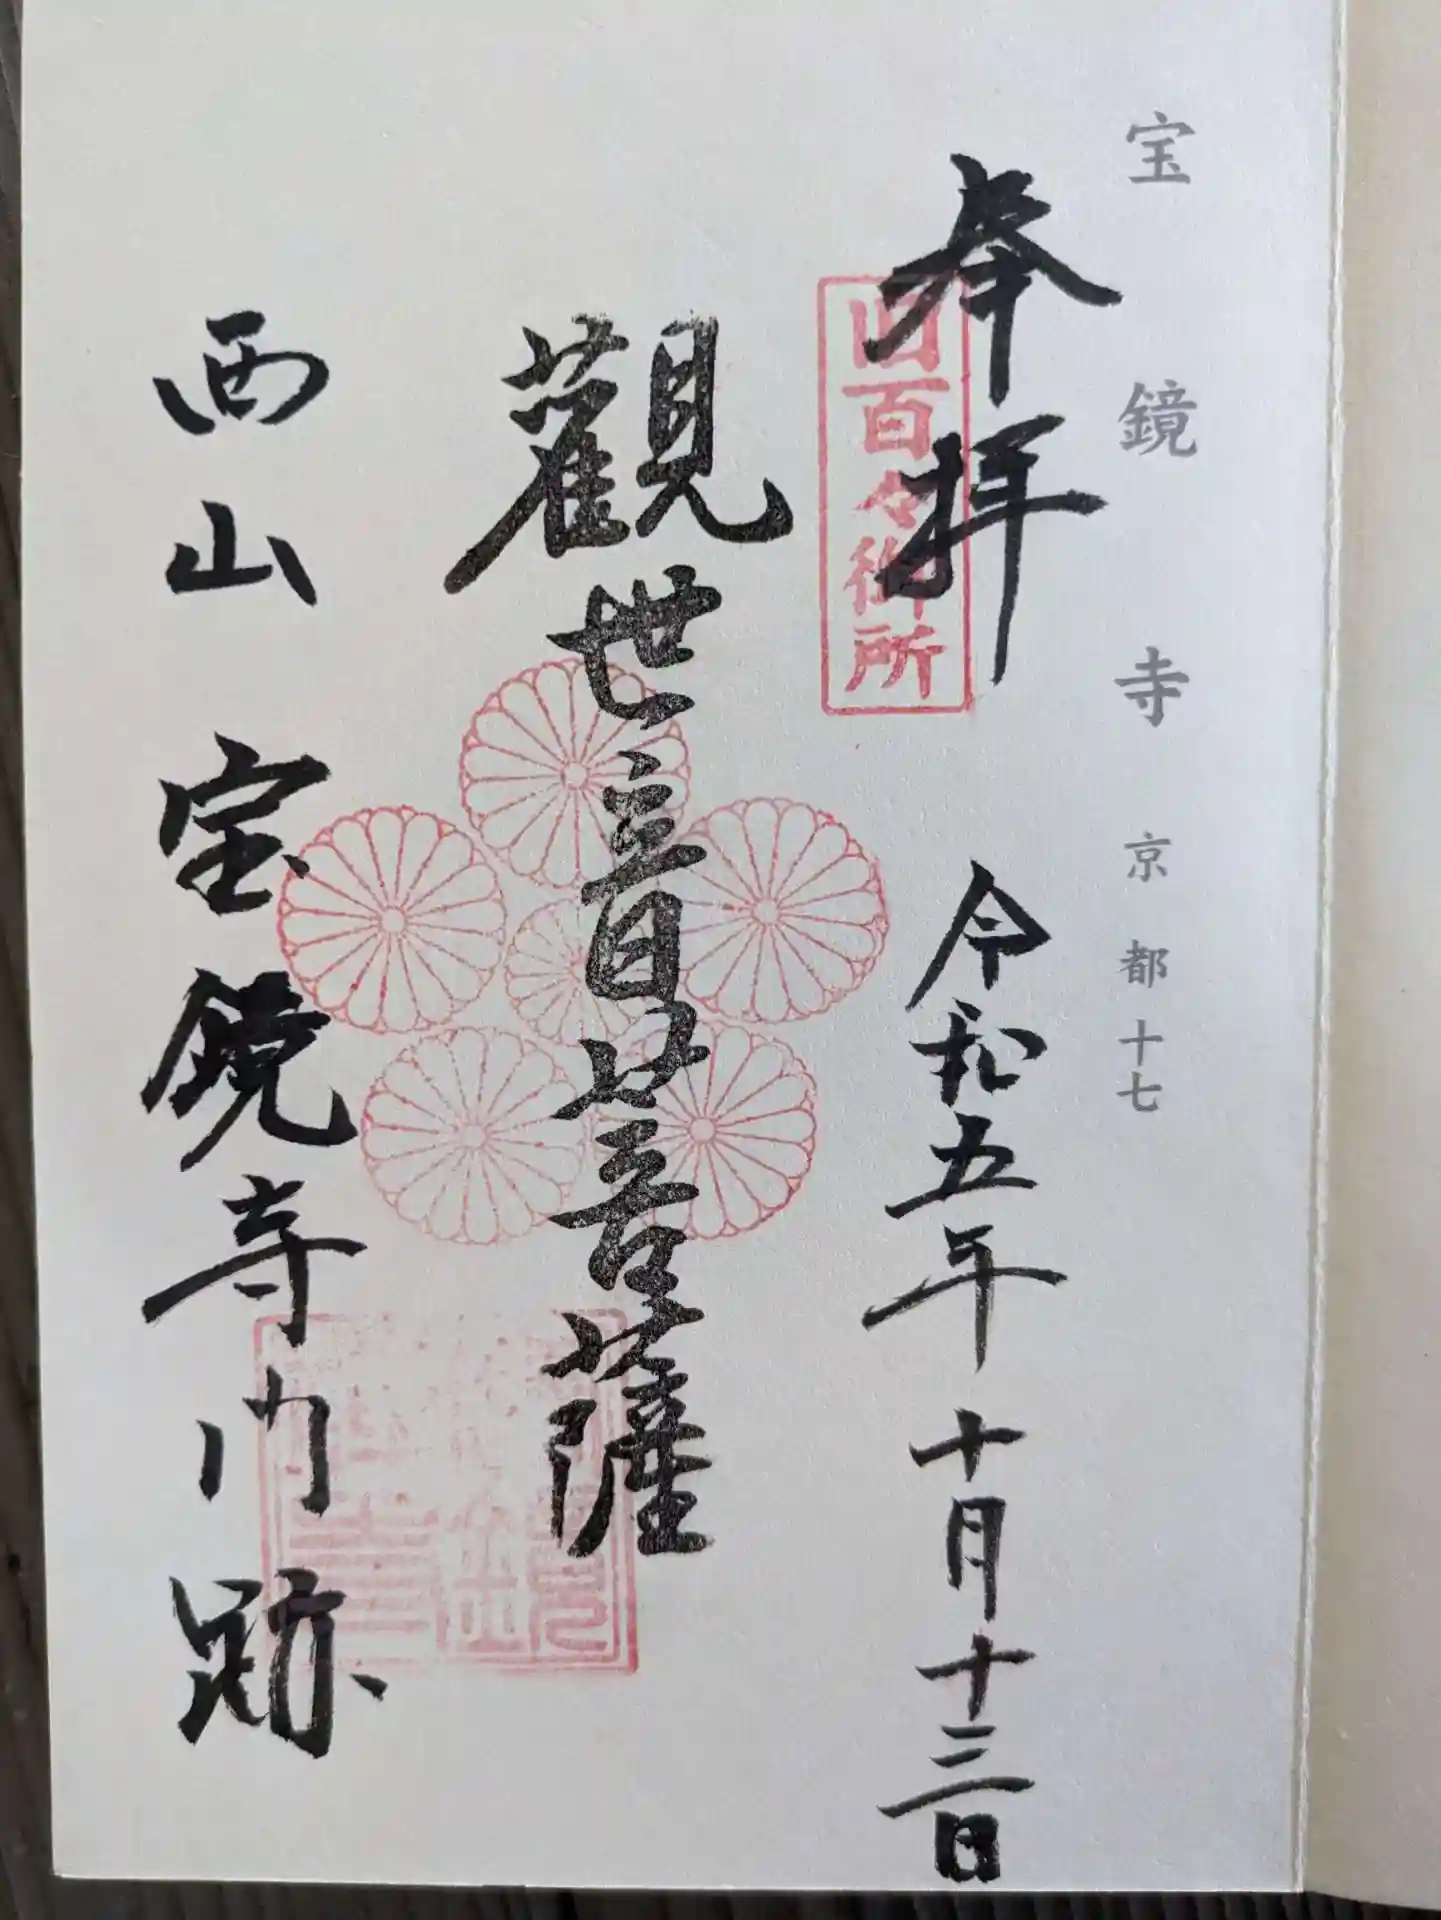 宝鏡寺 京都十七
奉拝 令和五年十月十三日
旧百々御所
觀世音菩薩
西山 宝鏡寺門跡